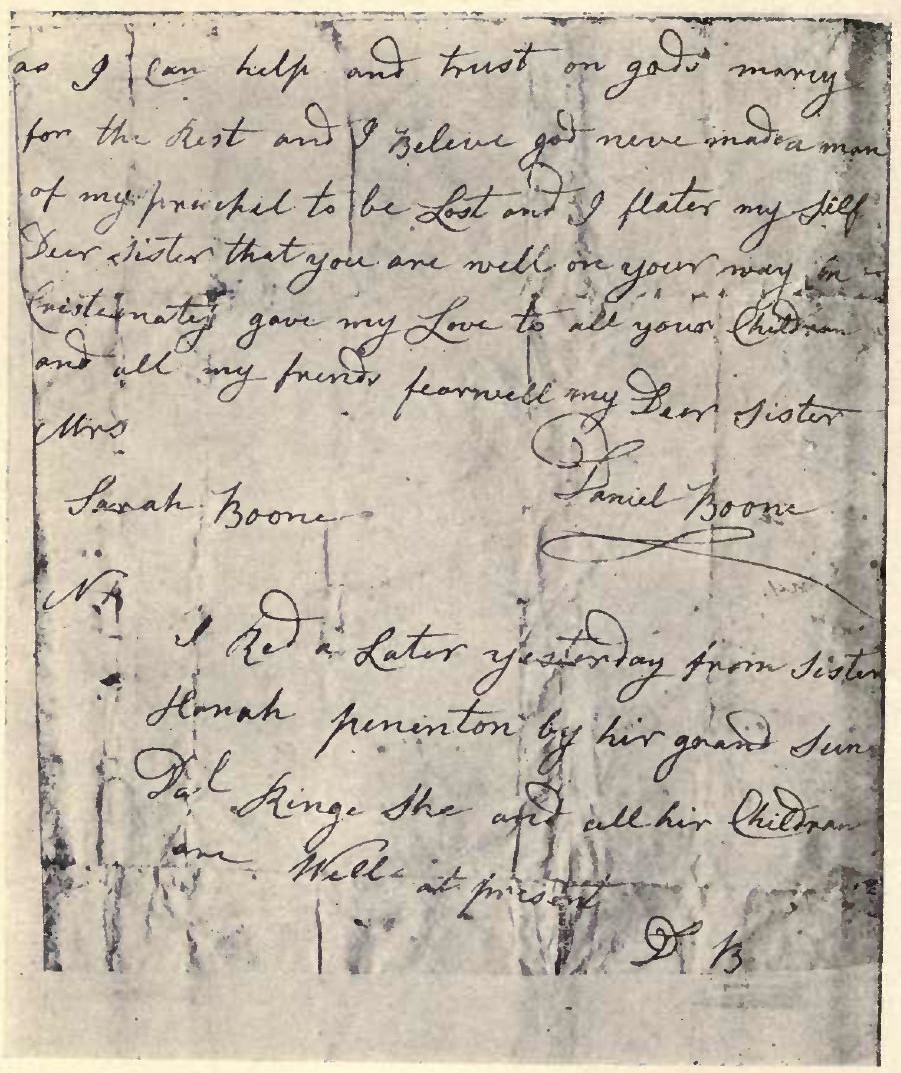 as I can help and trust on gods marcy
for the Rest and I Beleve god neve made a man
of my prischpel to be Lost and I flater my Self
Deer Sister that you are well on your way in
Cristeinaty gave my Love to all your Childran
and all my frends fearwell my Deer Sister
Mrs
Sarah Boone
Daniel Boone
NB
I Red a Later yesterday from Sister
Hanah peninton by hir grand Sun
Dal Ringe She and all hir Childran
are Well at present
D B